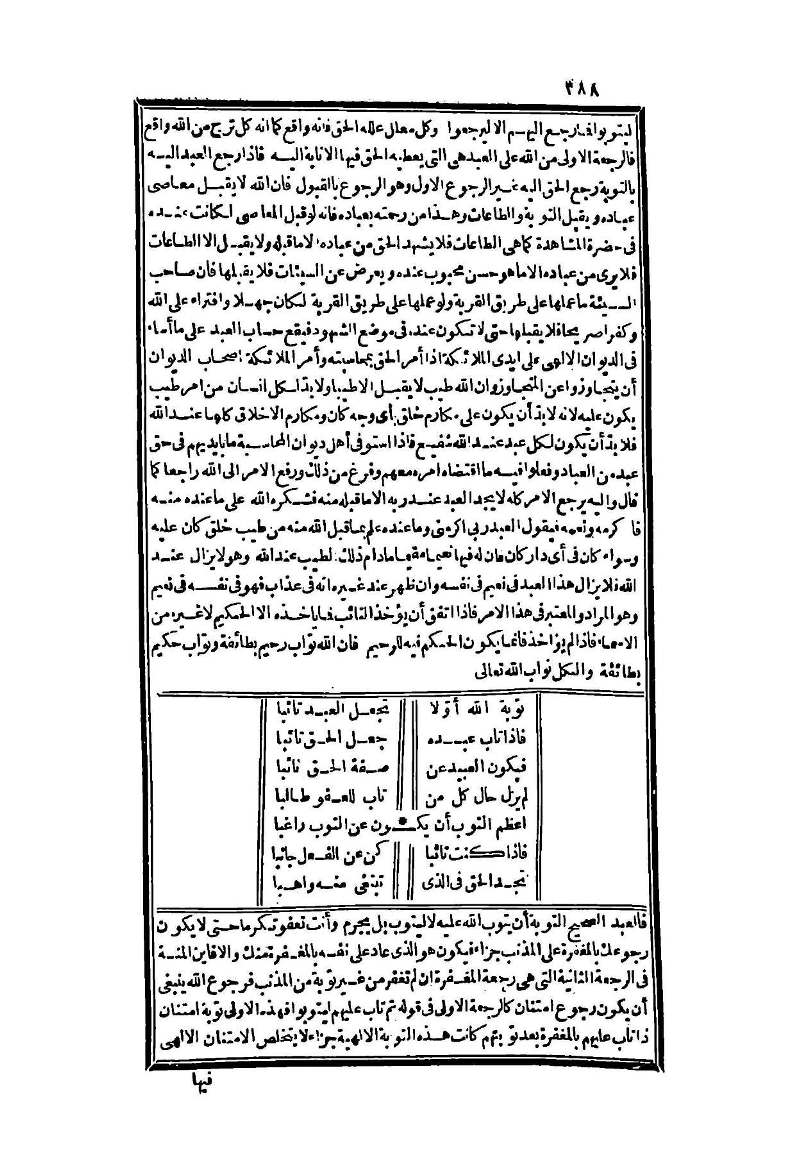 ٣٨٨
ليتوبوا فما رجع اليهم الا ليرجعوا وكل معال علله الحق فانه واقع كما انه كل ترج من الله واقع
فالرجعة الاولى من الله على العبد هى التى يعطيه الحق فيها الانابة اليه فاذا رجع العبد اليه
بالتوبة رجع الحق اليه غير الرجوع الاول وهو الرجوع بالقبول فان الله لا يقبل معاصى
عباده ويقبل التوبة والطاعات وهذا من رحمته بعباده فانه لو قبل المعاصى لكانت عنده
فى حضرة المشاهدة كما هى الطاعات فلا يشهد الحق من عباده الا ما قبله ولا يقبل الا الطاعات
فلا يرى من عباده الا ما هو حسن محبوب عنده ويعرض عن السيئات فلا يقبلها فان صاحب
السيئة ما عملها على طريق القربة ولو عملها على طريق القربة لكان جهلا وافتراء على الله
وكفرا صريحا فلا يقبلها حتى لا تكون عنده فى موضع الشهود فيقع حساب العبد على ما أساء
فى الديوان الالهى على ايدى الملائكة اذا أمر الحق بمحاسبته وأمر الملائكة أصحاب الديوان
أن يتجاوزوا عن المتجاوز وان الله طيب لا يقبل الا طيبا ولا بد لكل انسان من امر طيب
يكون عليه لانه لا بد أن يكون على مكارم خلق أى وجه كان ومكارم الاخلاق كلها عند الله
فلا بد أن يكون لكل عبد عند الله شفيع فاذا استوفى أهل ديوان المحاسبة ما بايديهم فى حق
عبد من العباد وفعلوا فيه ما اقتضاه امره معهم وفرغ من ذلك ورفع الامر الى الله راجعا كما
قال واليه يرجع الامر كله لا يجد العبد عند ربه الا ما قبله منه فشكره الله على ما عنده منه
فاكرمه ونعمه فيقول العبد ربى اكرمنى وما عنده علم بما قبل الله منه من طيب خلق كان عليه
وسواء كان فى أى دار كان فان له فيها نعيما مقيما ما دام ذلك الطيب عند الله وهو لا يزال عند
الله فلا يزال هذا العبد فى نعيم فى نفسه وان ظهر عند غيره انه فى عذاب فهو فى نفسه فى نعيم
وهو المراد والمعتبر فى هذا الامر فاذا اتفق أن يؤخذ التائب فما ياخذه الا الحكيم لا غيره من
الاسماء فاذا لم يؤاخذ فانما يكون الحكم فيه للرحيم فان الله تواب رحيم بطائفة وتواب حكيم
بطائفة والكل تواب الله تعالى
توبة الله أولا تجعل العبد تائبا
فاذا تاب عبده جعل الحق تائبا
فيكون العبيد عن صفة الحق نائبا
لم يزل حال كل من تاب للعفو طالبا
اعظم التوب أن يكون عن التوب راغبا
فاذا كنت تائبا كن عن الفعل جانبا
تجد الحق فى الذى تبتغى منه واهبا
فالعبد الصحيح التوبة أن يتوب الله عليه لا ليتوب بل يجرم وأنت تعفو تكرما حتى لا يكون
رجوعك بالمغفرة على المذنب جزاء فيكون هو الذى عاد على نفسه بالمغفرة منك والا فاين المنة
فى الرجعة الثانية التى هى رجعة المغفرة ان لم تغفر من غير توبة من المذنب فرجوع الله ينبغى
أن يكون رجوع امتنان كالرجعة الاولى فى قوله ثم تاب عليهم ليتوبوا فهذه الاولى توبة امتنان
فاذا تاب عليهم بالمغفرة بعد توبتهم كانت هذه التوبة الالهية جزاء لا يتخلص الامتنان الالهى
فيها